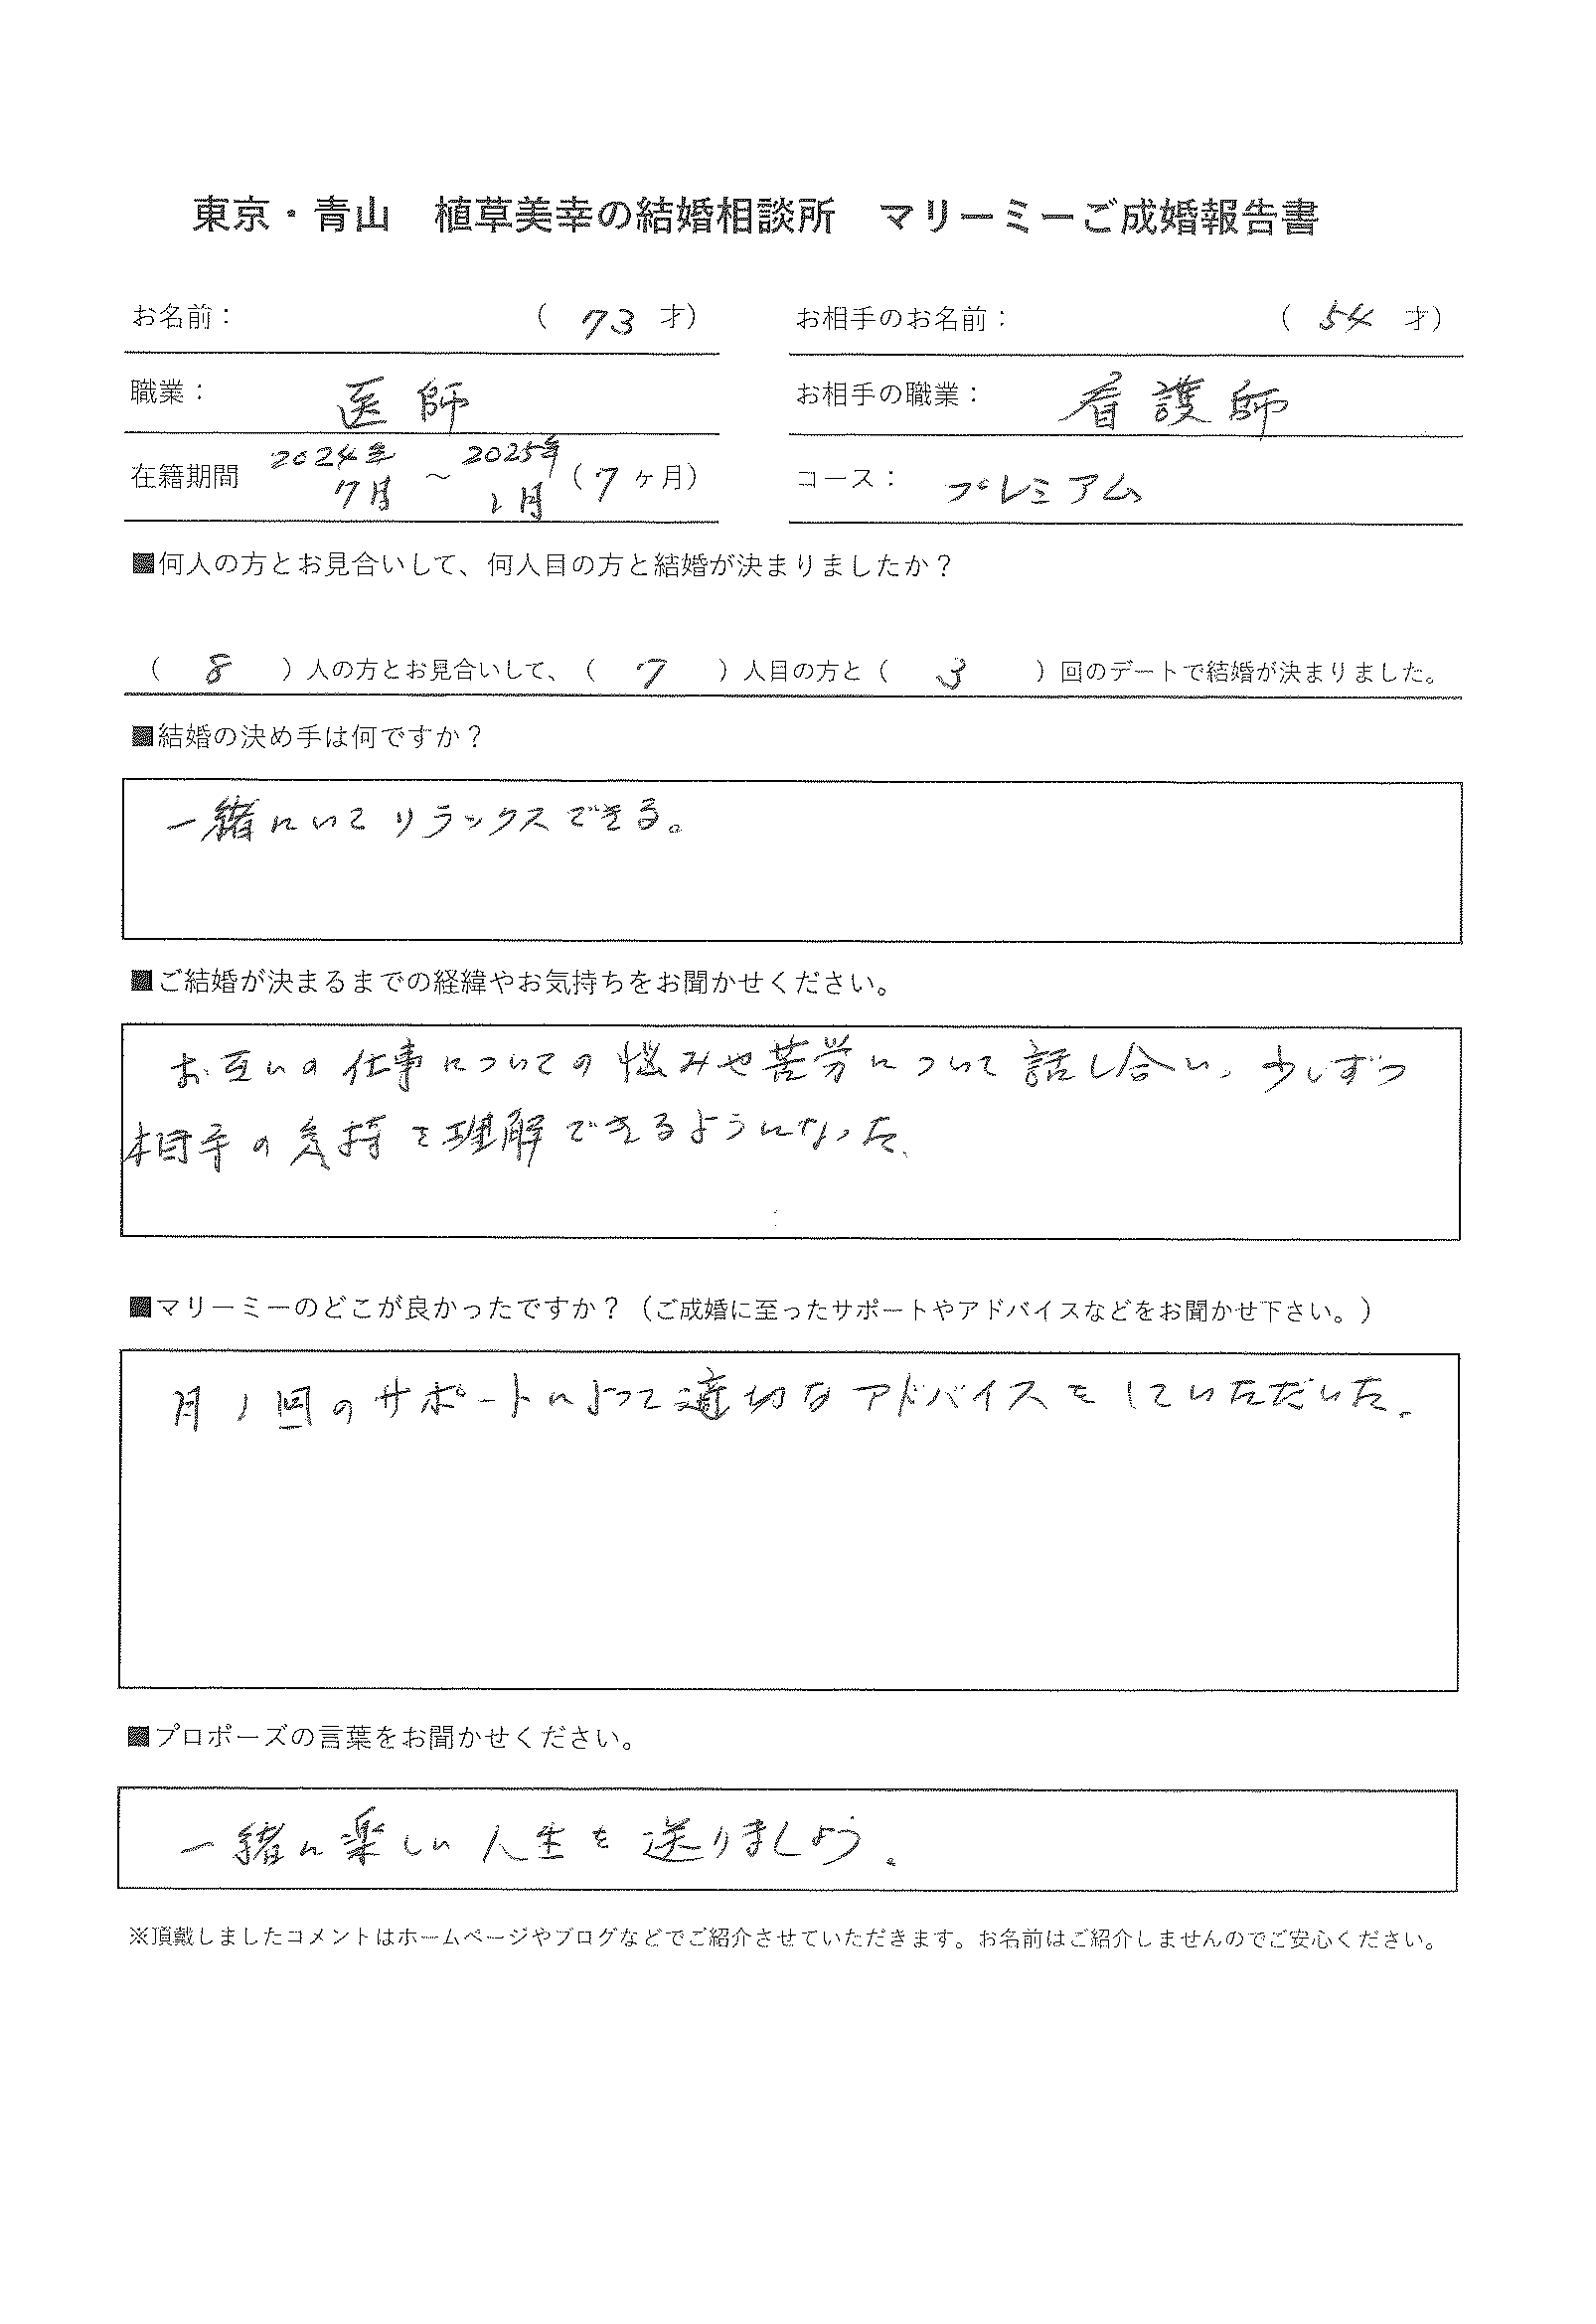 東京・青山　植草美幸の結婚相談所　マリーミーご成婚報告書
お名前：　（ 73 才）　お相手のお名前：　（ 54 才）
職業：　医師　お相手の職業：　看護師
在籍期間　2024年7月　～　2025年1月（7ヶ月）　コース：　プレミアム
■何人の方とお見合いして、何人目の方と結婚が決まりましたか？
（ 8 ）人の方とお見合いして、（ 7 ）人目の方と（ 3 ）回のデートで結婚が決まりました。
■結婚の決め手は何ですか？
一緒にいてリラックスできる。
■ご結婚が決まるまでの経緯やお気持ちをお聞かせください。
お互いの仕事についての悩みや苦労について話し合い、少しずつ
相手の気持を理解できるようになった。
■マリーミーのどこが良かったですか？（ご成婚に至ったサポートやアドバイスなどをお聞かせ下さい。）
月1回のサポートによって適切なアドバイスをしていただいた。
■プロポーズの言葉をお聞かせください。
一緒に楽しい人生を送りましょう。
※頂戴しましたコメントはホームページやブログなどでご紹介させていただきます。お名前はご紹介しませんのでご安心ください。